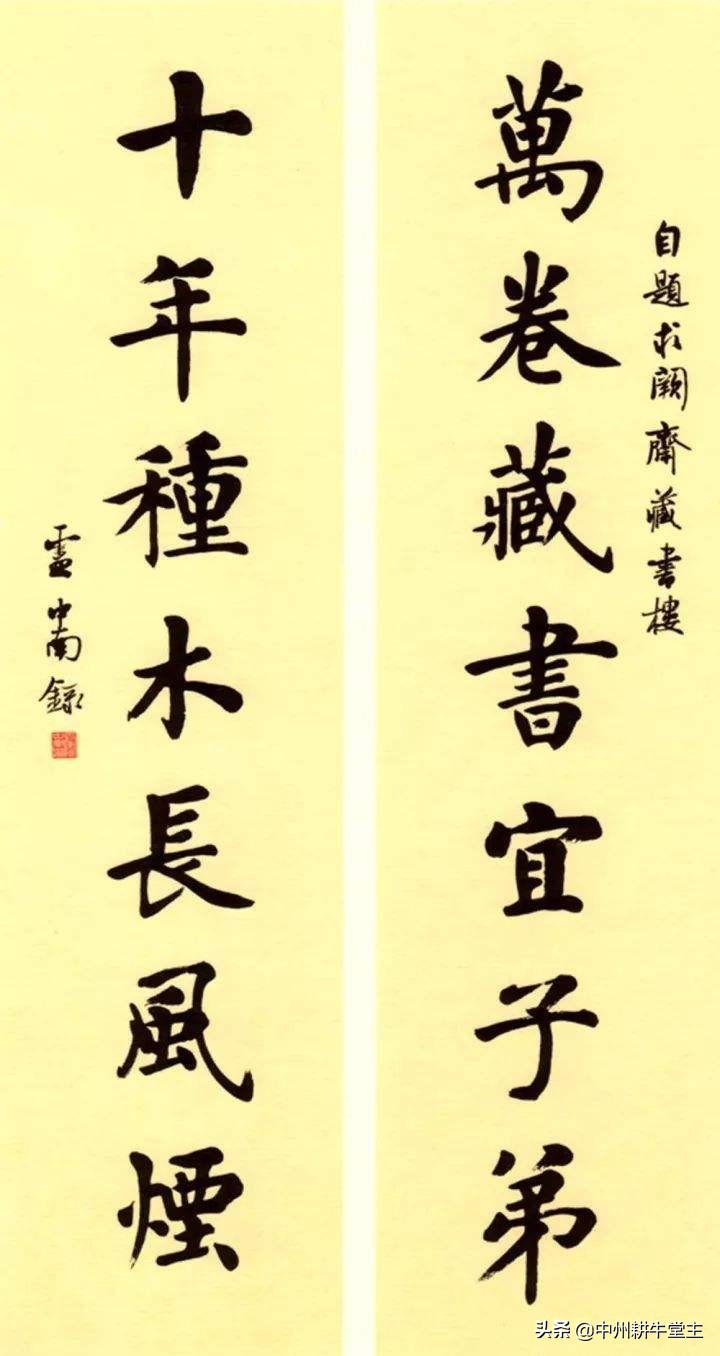 自題求闕齋藏書樓
萬卷藏書宜子弟
十年種木長風煙
盧中南錄
头条 @中州耕牛堂主